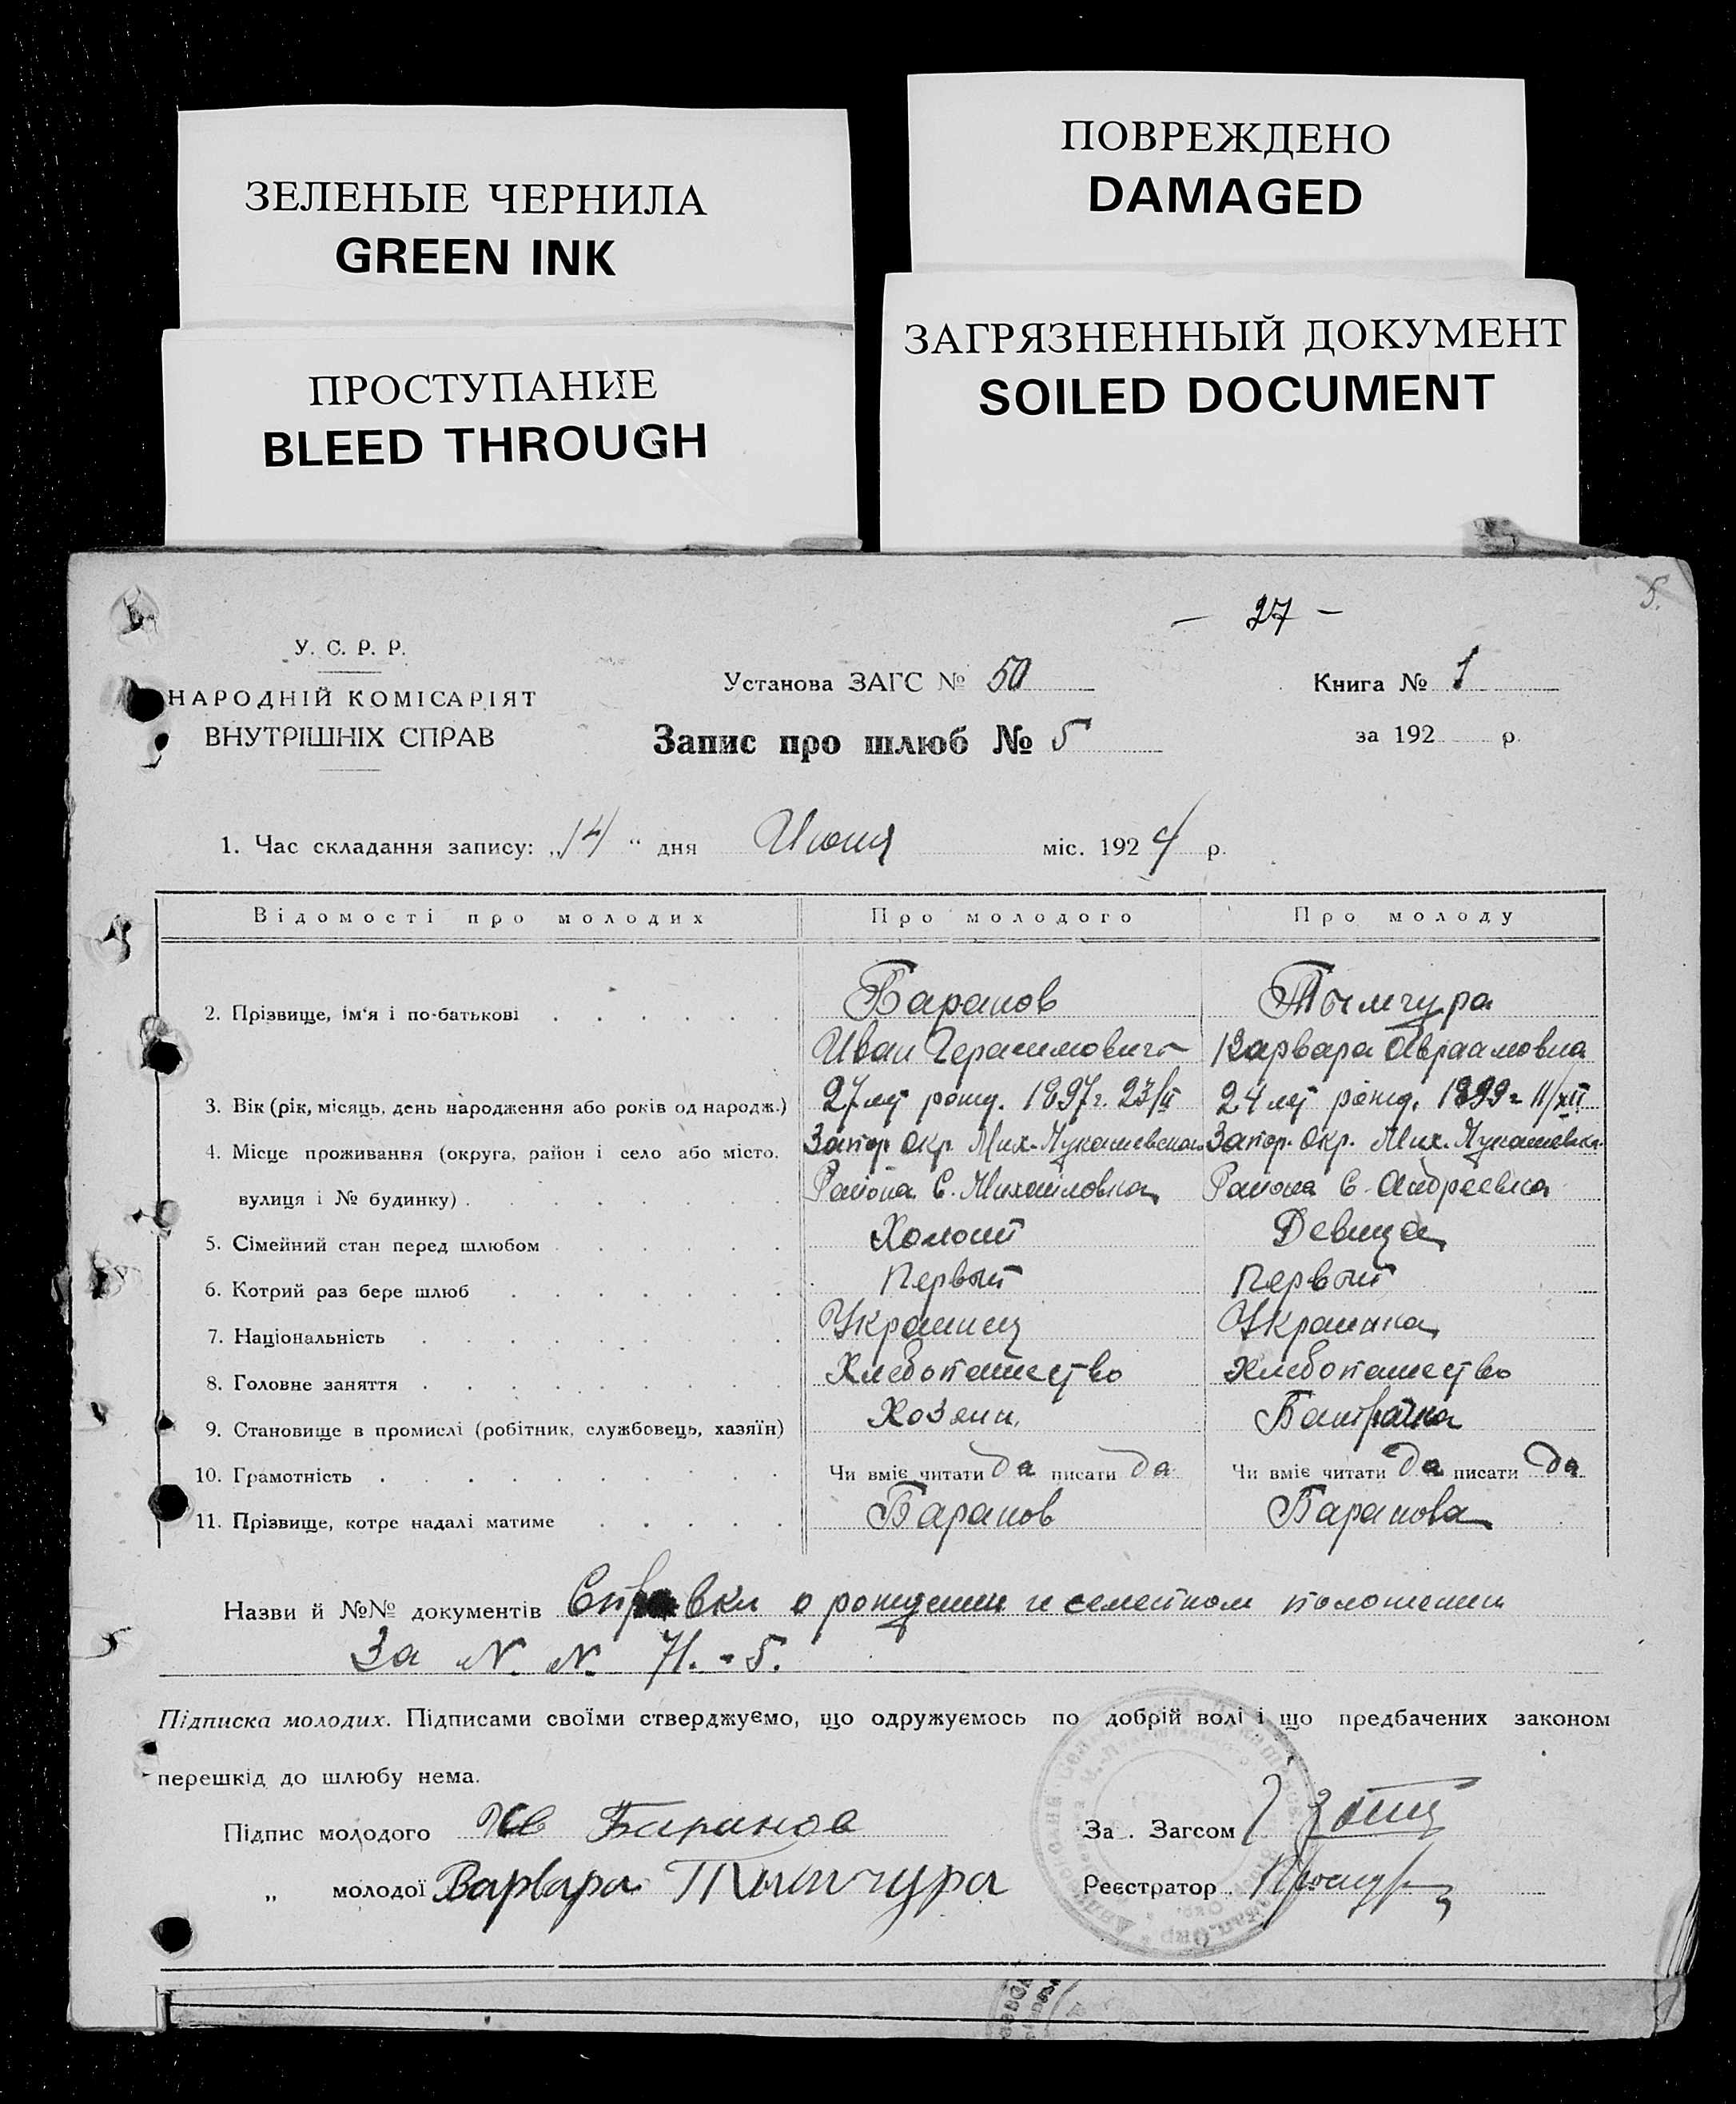 ЗЕЛЕНЫЕ ЧЕРНИЛА
GREEN INK
ПОВРЕЖДЕНО
DAMAGED
ПРОСТУПАНИЕ
BLEED THROUGH
ЗАГРЯЗНЕННЫЙ ДОКУМЕНТ
SOILED DOCUMENT
5.
— 27 —
У. С. Р. Р.
НАРОДНІЙ КОМІСАРІЯТ
ВНУТРІШНІХ СПРАВ
Установа ЗАГС № 50
Книга № 1
Запис про шлюб № 5
за 192 р.
1. Час складання запису: „14“ дня Июня міс. 1924 р.
Відомості про молодих Про молодого Про молоду
2. Прізвище, ім'я і по-батькові . . . . . . Баранов Тымчура
Иван Герасимович Варвара Авраамовна
3. Вік (рік, місяць, день народження або років од народж.) 27 лет рожд. 1897 г. 23/II 24 лет рожд. 1899 г. 11/XII
4. Місце проживання (округа, район і село або місто, Запор. Окр. Мих.-Лукашевского Запор. Окр. Мих.-Лукашевск.
вулиця і № будинку) . . . . . . Района С. Михайловка Района С. Андреевка
5. Сімейний стан перед шлюбом . . . . . . Холост Девица
6. Котрий раз бере шлюб . . . . . . . Первый Первый
7. Національність . . . . . . Украинец Украинка
8. Головне заняття . . . . . . . . . Хлебопашество Хлебопашество
9. Становище в промислі (робітник, службовець, хазяїн) Хозяин. Батрачка
10. Грамотність . . . . . . . . . . Чи вміє читати да писати да Чи вміє читати да писати да
11. Прізвище, котре надалі матиме . . . . . Баранов Баранова
Назви й №№ документів Справки о рождении и семейном положении
За N. N. 71. - 5.
Підписка молодих. Підписами своїми стверджуємо, що одружуємось по добрій волі і що предбачених законом
перешкід до шлюбу нема.
Підпис молодого Ив Баранов
За . Загсом
„ молодої Варвара Тымчура
Реєстратор .